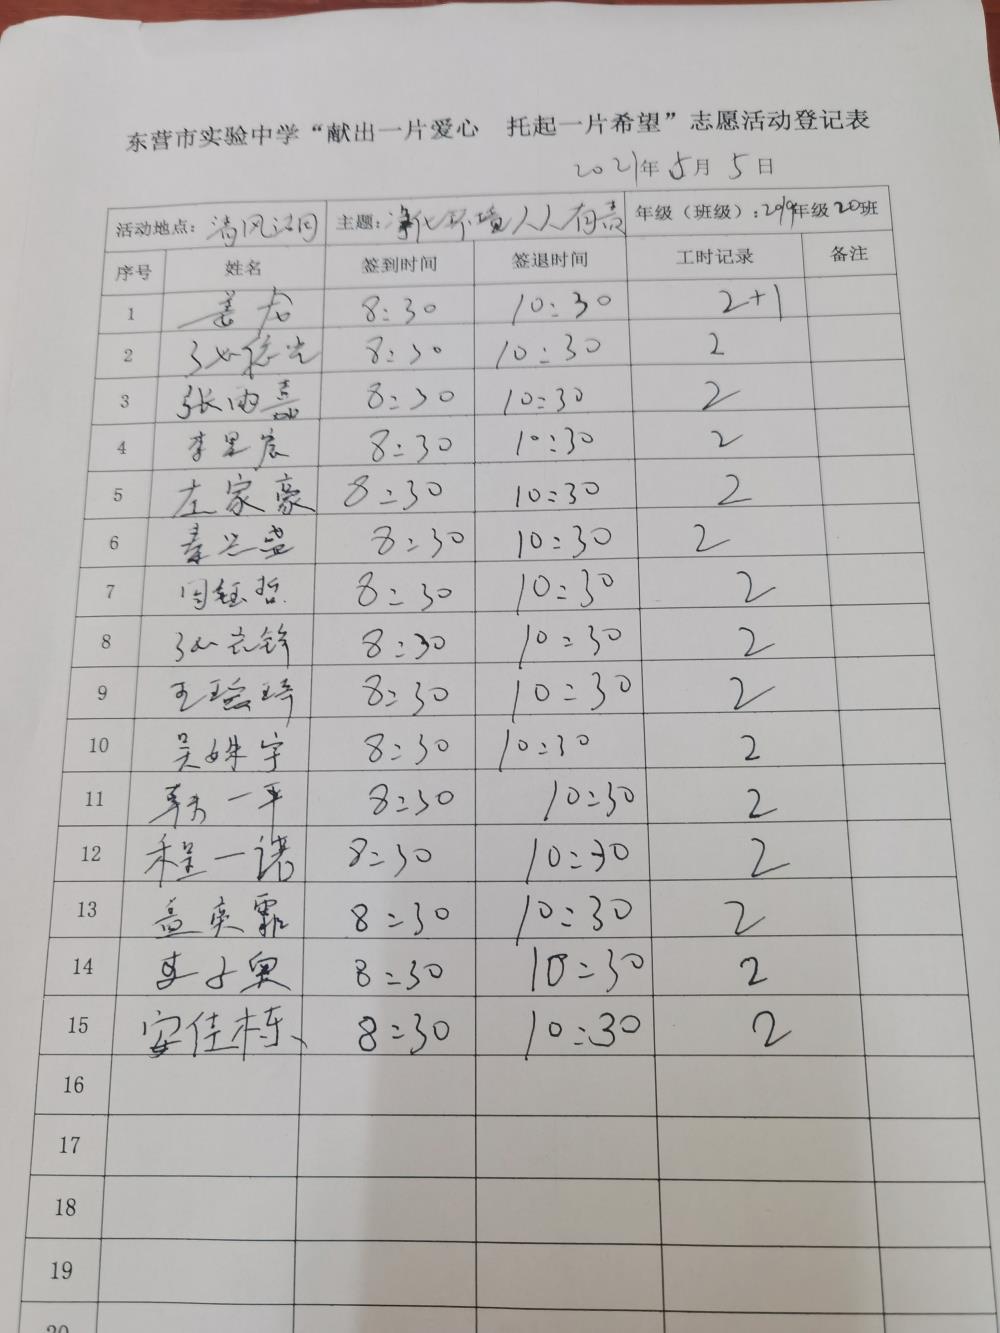 东营市实验中学“献出一片爱心 托起一片希望”志愿活动登记表
2021年5月5日
活动地点：清风 主题：净化环境人人有责 年级（班级）：2019年级20班
序号 姓名 签到时间 签退时间 工时记录 备注
1 8:30 10:30 2+1
2 8:30 10:30 2
3 张雨嘉 8:30 10:30 2
4 李昱宸 8:30 10:30 2
5 左家豪 8:30 10:30 2
6 秦兴盛 8:30 10:30 2
7 周钰哲 8:30 10:30 2
8 8:30 10:30 2
9 王瑶琦 8:30 10:30 2
10 吴姝宇 8:30 10:30 2
11 韩一平 8:30 10:30 2
12 程一诺 8:30 10:30 2
13 盖奕霏 8:30 10:30 2
14 李子奥 8:30 10:30 2
15 安佳栋 8:30 10:30 2
16
17
18
19
20